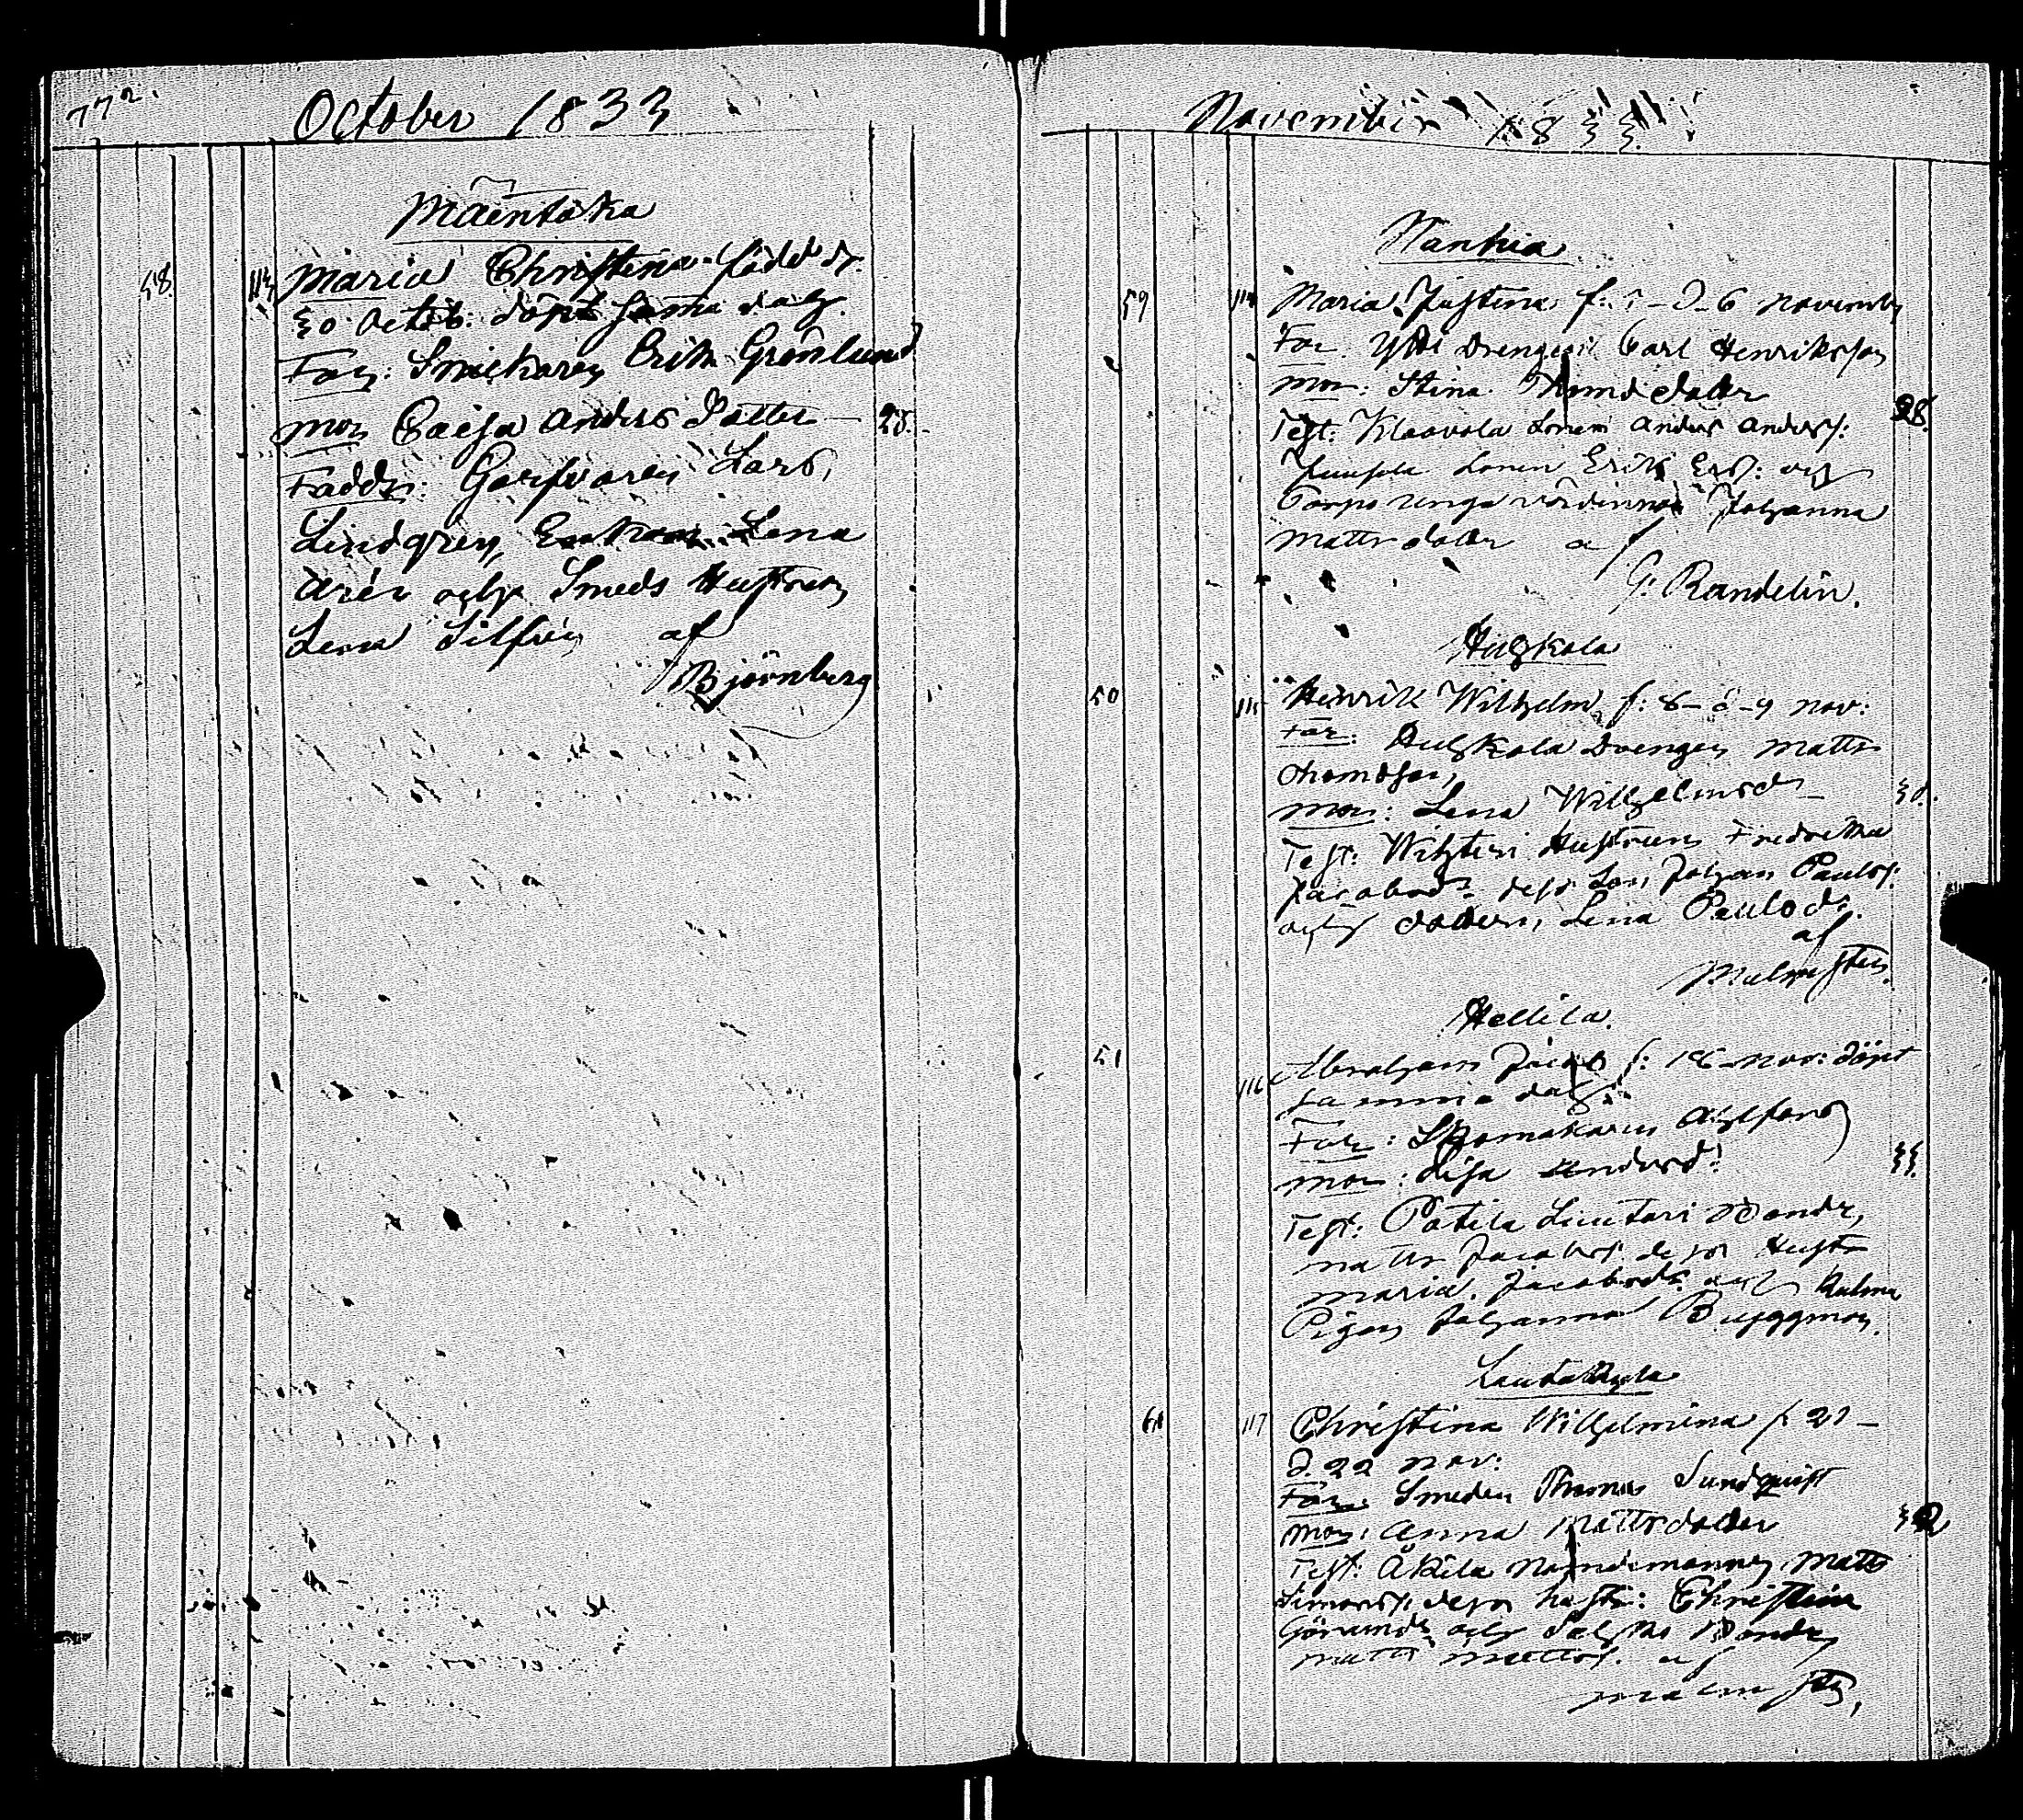 772.
October 1833
Mäentaka
58. 113 Maria Christina född d.
30 Octob: döpt samma dag.
Far: Snickaren Erik Grönlund
mor Caisa Anders Dotter — 25.
Faddr: Garfvaren Lars
Lindgren, Enkan Lena
Arén och Smeds Hustrun
Lena Silfvén af
Björnberg
November 1833.
Nanhia
59 114 Maria Justina f: 5 - d. 6 Novemb
Far. drengen Carl Henriksson
mor: Stina dotter 28.
Test: Klaavola Sonen Anders Anders:
Juusela Sonen Erik Ers: och
Torpo unga värdinnan Johanna
Matts dotter af
G: Randelin.
Huhkola
50 115 Henrik Wilhelm f: 8 - d - 9 nov:
Far: Huhkola Drengen Matts
Thomasson,
mor: Lena Wilhelmsdr 30.
Test: Hustrun Fredrika
Jacobsdr dess Son Johan Pauls:
och dottern, Lena Paulsdr.
af
Malmsten.
Hellilä.
51 116 Abraham Jacob f: 16 nov: döpt
samma dag.
Far: Skomakaren Ahlfors
mor: Lisa Andersd: 33.
Test: Bonde,
Matts Jacobs: dess Hustr
Maria Jacobsdr och
Pigan Johanna Byggmon.
Lautakylä
60 117 Christina Wilhelmina f. 21 —
d. 22 nov:
Far: Smeden Thomas Sundquist
mor: Anna Mattsdotter 32
Test: Äkilä Nämndemannen Matts
Simonss: dess hustr: Christina
Göransdr och Bonden
Matts Mattss. af
Malmsten.